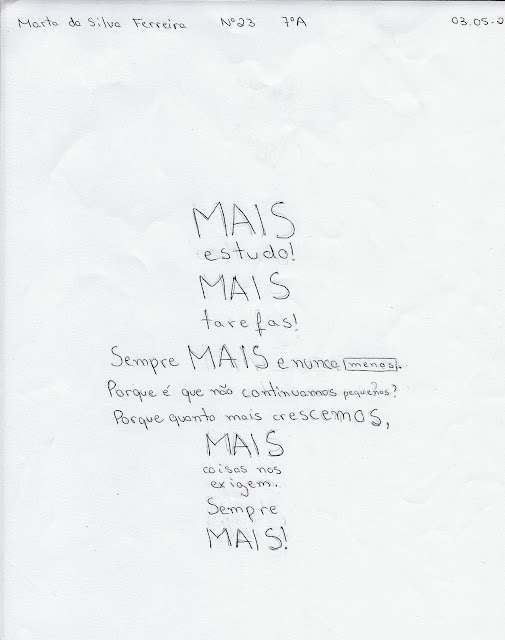 Marta da Silva Ferreira Nº23 7ºA 03.05.0
MAIS
estudo!
MAIS
tarefas!
Sempre MAIS e nunca menos.
Porque é que não continuamos pequenos?
Porque quanto mais crescEMOS,
MAIS
coisas nos
exigem..
Sempre
MAIS!